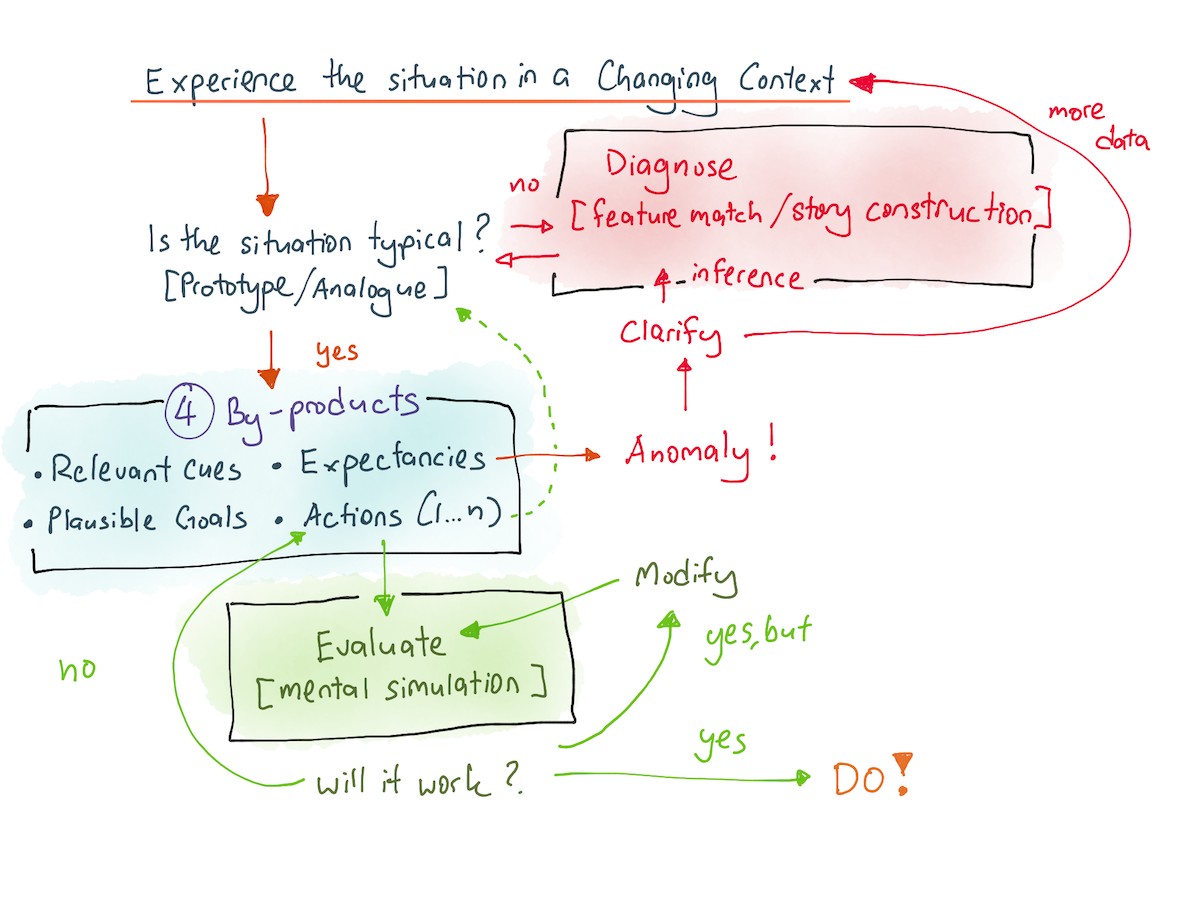 Experience the situation in a Changing Context
more
data
Diagnose
[feature match/story construction]
inference
no
Is the situation typical?
[Prototype/Analogue]
Clarify
yes
4 By-products
• Relevant cues • Expectancies
• Plausible Goals • Actions (1...n)
Anomaly!
Modify
yes, but
Evaluate
[mental simulation]
no
will it work?
yes
DO!